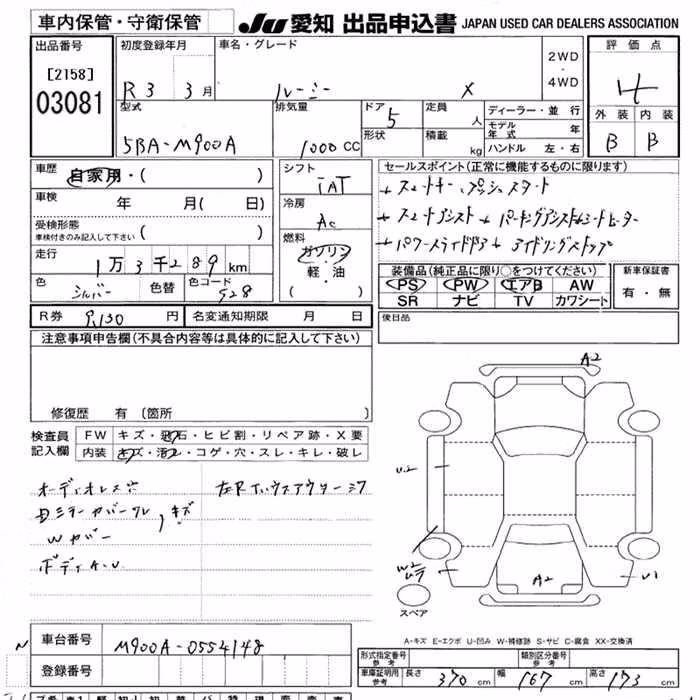 車内保管・守衛保管
JU 愛知 出品申込書 JAPAN USED CAR DEALERS ASSOCIATION
出品番号 初度登録年月 車名・グレード 2WD・4WD 評価点
[2158] R3 3月 ルーミー X 4
03081
型式 排気量 ドア 5 定員 人 ディーラー・並行 外装 内装
5BA-M900A 1000 CC 形状 積載 kg モデル年式 年 B B
ハンドル 左・右
車歴 自家用・( )
シフト IAT
セールスポイント(正常に機能するものに限ります)
車検 年 月( 日)
スマートキー プッシュスタート
冷房 AC
受検形態 ( )
車検付きのみ記入して下さい
スマートアシスト パーキングアシスト シートヒーター
燃料 ガソリン・軽・油 ( )
パワースライドドア アイドリングストップ
走行 1万3千289km
装備品(純正品に限り○をつけてください) 新車保証書
色 シルバー 色替 色コード S28
PS PW エアB AW 有・無
SR ナビ TV カワシート
R券 9,130 円 名変通知期限 月 日
後日品
注意事項申告欄(不具合内容等は具体的に記入して下さい)
修復歴 有 〔箇所 〕
A2
検査員記入欄 FW キズ・飛石・ヒビ割・リペア跡・X要
内装 キズ・汚れ・コゲ・穴・スレ・キレ・破レ
オーディオレス
キズ
Wカバー
ボディA・U
U2
W2
A2
U1
スペア
A-キズ E-エクボ U-凹み W-補修跡 S-サビ C-腐食 XX-交換済
車台番号 M900A-0554148
登録番号
形式指定番号 参考 類別区分番号 参考
車庫証明用 参考 長さ 370 cm 幅 167 cm 高さ 173 cm